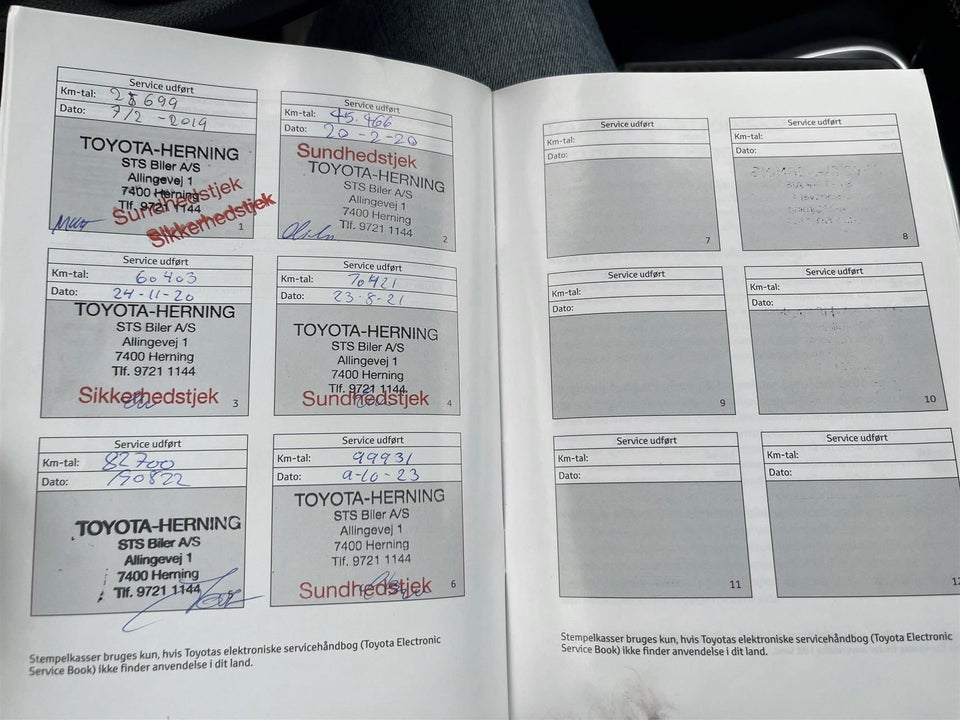 Service udført
Km-tal: 25699
Dato: 7/2 -2019
TOYOTA-HERNING
STS Biler A/S
Allingevej 1
7400 Herning
Tlf. 9721 1144
Sundhedstjek
Sikkerhedstjek
1
Service udført
Km-tal: 45.466
Dato: 20-2-20
Sundhedstjek
TOYOTA-HERNING
STS Biler A/S
Allingevej 1
7400 Herning
Tlf. 9721 1144
2
Service udført
Km-tal: 60403
Dato: 24-11-20
TOYOTA-HERNING
STS Biler A/S
Allingevej 1
7400 Herning
Tlf. 9721 1144
Sikkerhedstjek
3
Service udført
Km-tal: 70421
Dato: 23-8-21
TOYOTA-HERNING
STS Biler A/S
Allingevej 1
7400 Herning
Tlf. 9721 1144
Sundhedstjek
4
Service udført
Km-tal: 82700
Dato: 190822
TOYOTA-HERNING
STS Biler A/S
Allingevej 1
7400 Herning
Tlf. 9721 1144
Service udført
Km-tal: 99931
Dato: 9-10-23
TOYOTA-HERNING
STS Biler A/S
Allingevej 1
7400 Herning
Tlf. 9721 1144
Sundhedstjek
6
Stempelkasser bruges kun, hvis Toyotas elektroniske servicehåndbog (Toyota Electronic
Service Book) ikke finder anvendelse i dit land.
Service udført
Km-tal:
Dato:
7
Service udført
Km-tal:
Dato:
8
Service udført
Km-tal:
Dato:
9
Service udført
Km-tal:
Dato:
10
Service udført
Km-tal:
Dato:
11
Service udført
Km-tal:
Dato:
12
Stempelkasser bruges kun, hvis Toyotas elektroniske servicehåndbog (Toyota Electronic
Service Book) ikke finder anvendelse i dit land.